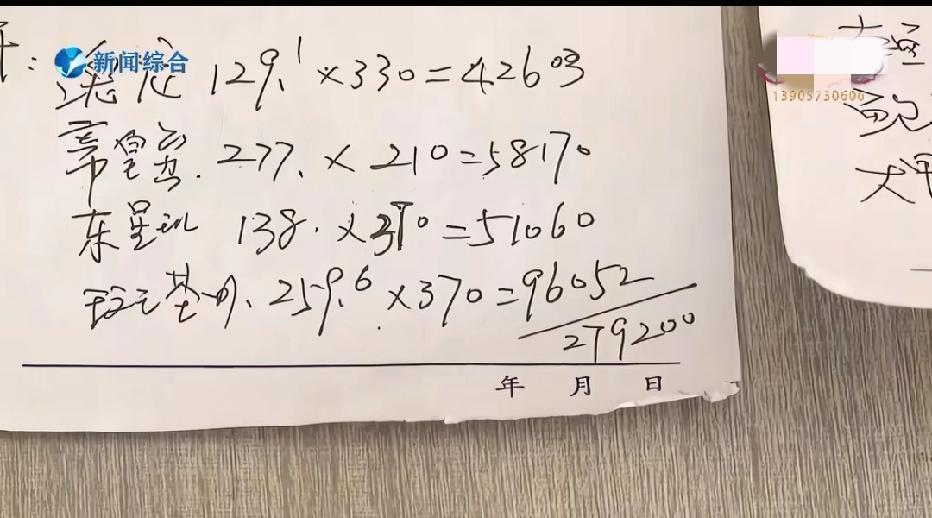 新闻综合
129.1 ×330=42603
277. × 210=58170
东星斑 138. ×370=51060
259.6 ×370=96052
279200
年 月 日
13905730606
鲍